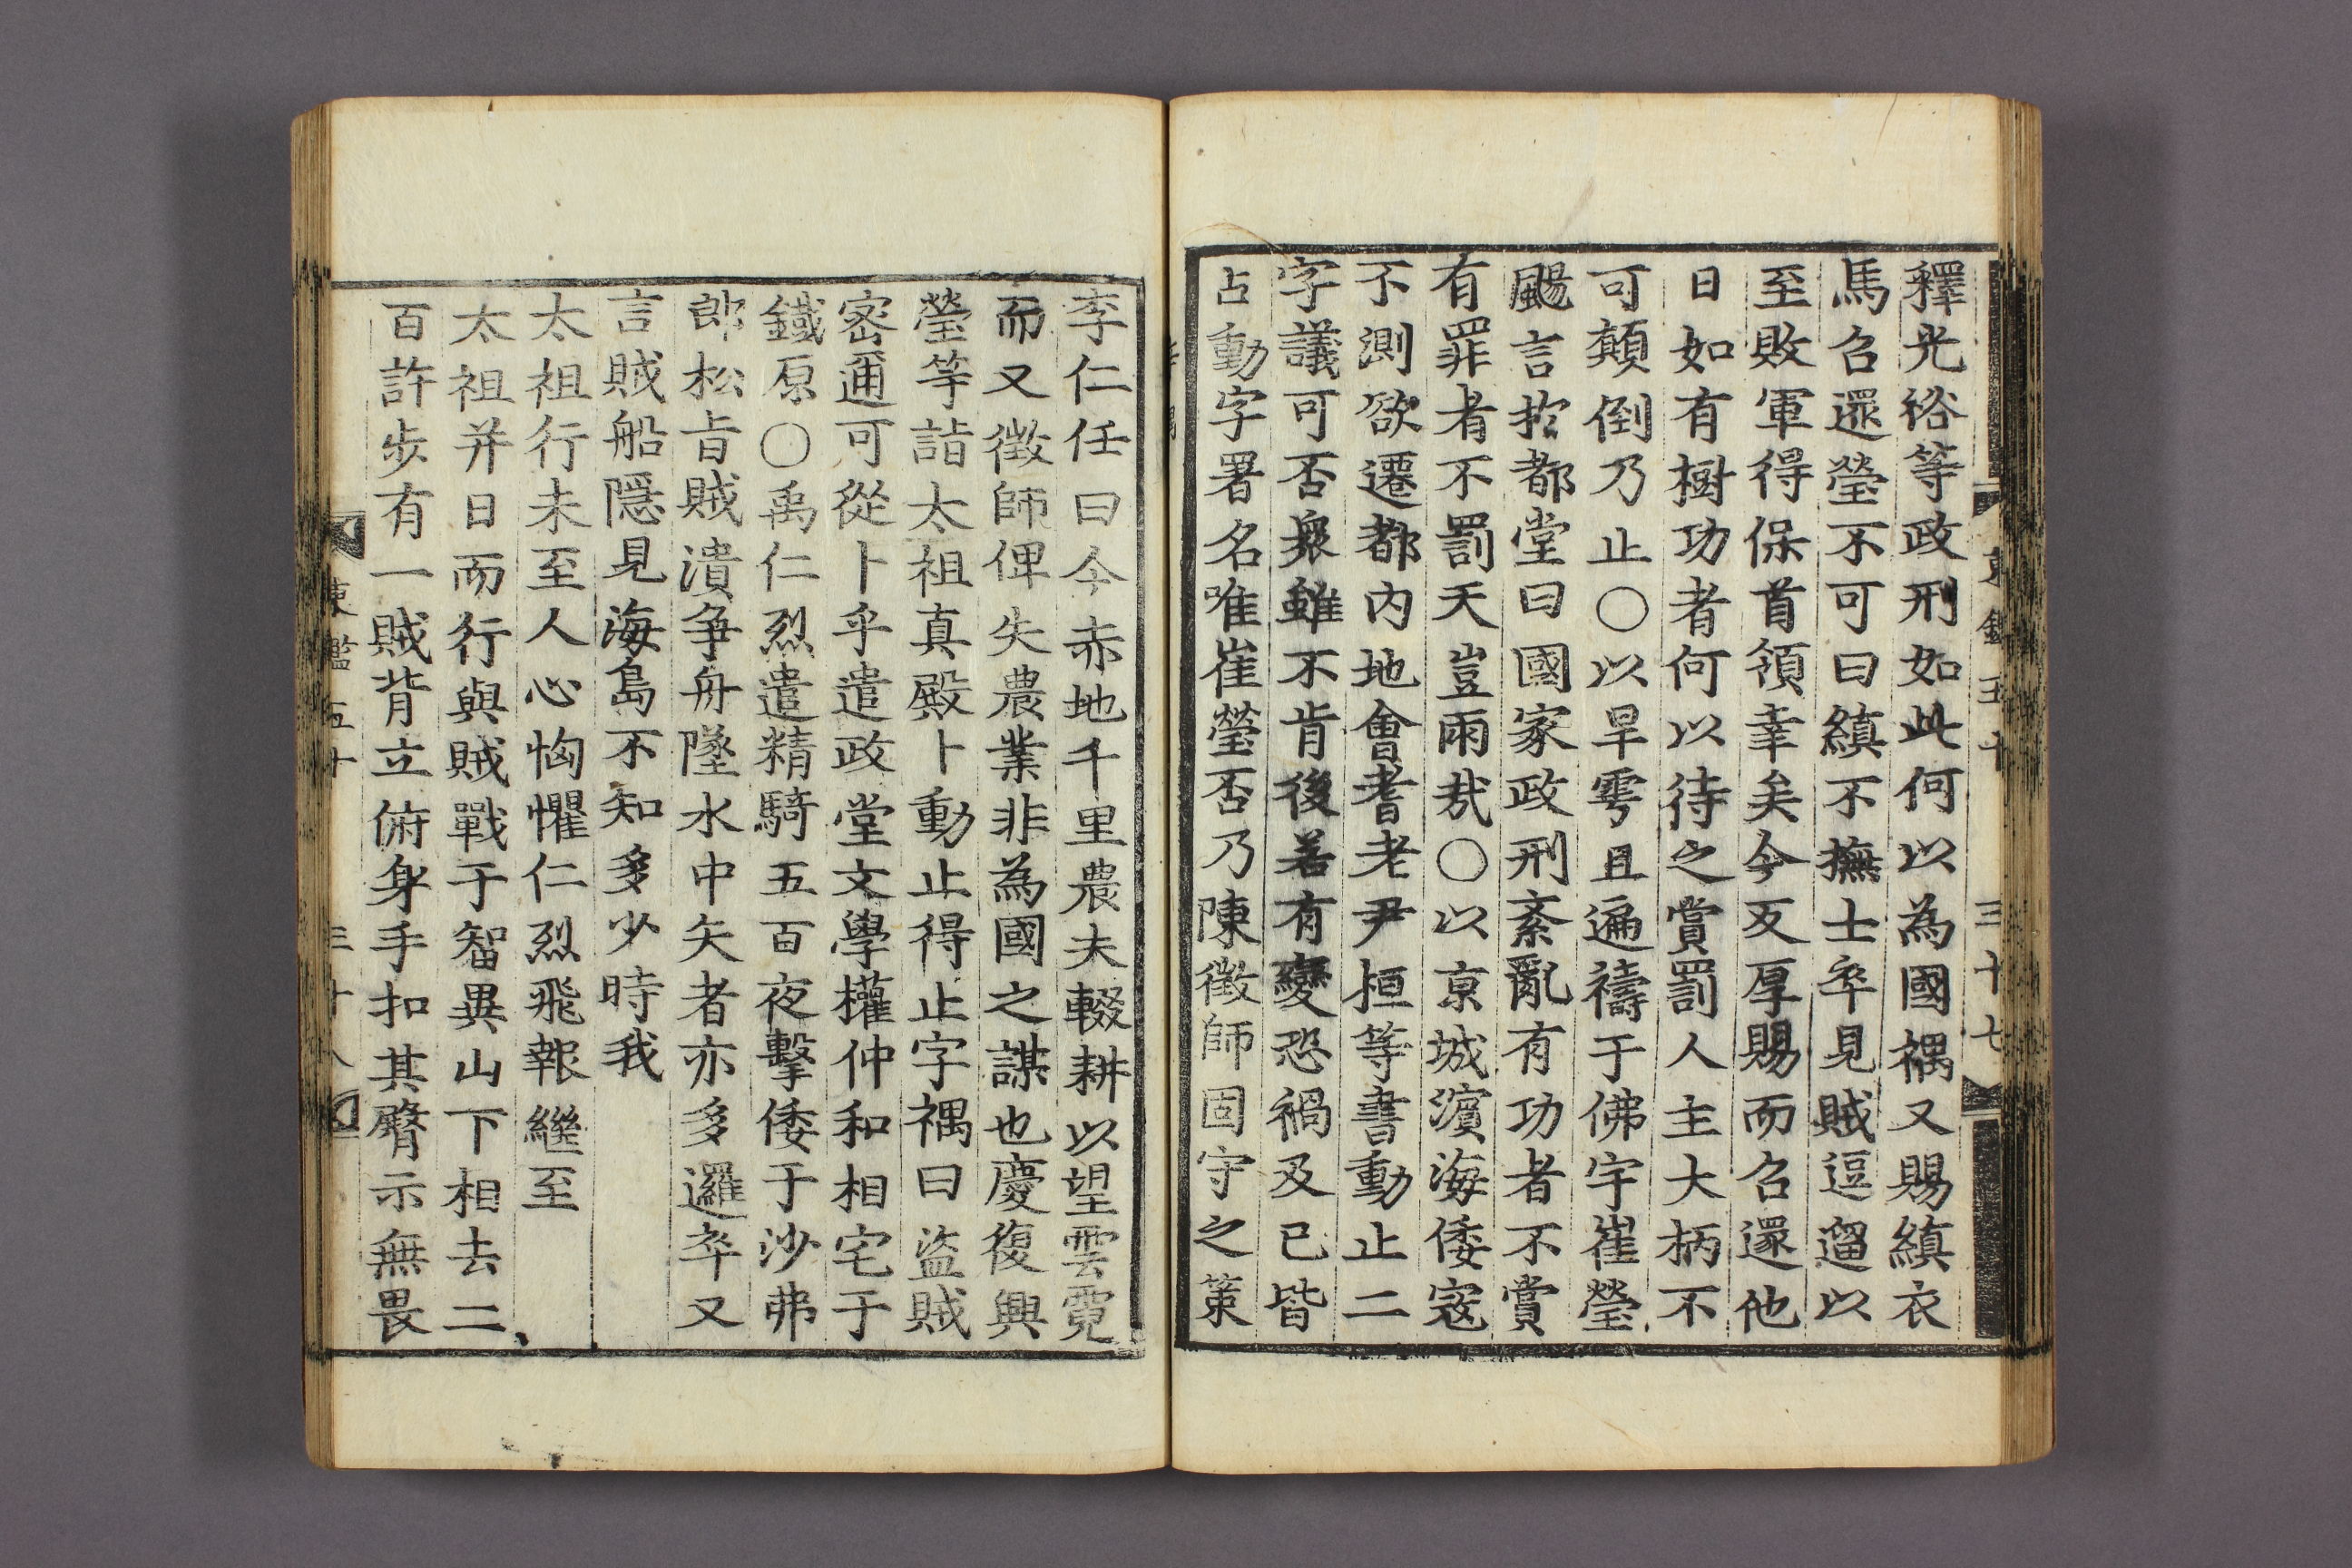 釋光裕等政刑如此何以為國禑又賜縝衣
馬召還瑩不可曰縝不撫士卒見賊逗遛以
至敗軍得保首領幸矣今反厚賜而召還他
日如有樹功者何以待之賞罰人主大柄不
可顛倒乃止○以旱雩且遍禱于佛宇崔瑩
颺言於都堂曰國家政刑紊亂有功者不賞
有罪者不罰天豈雨㦲○以京城濵海倭寇
不測欲遷都內地會耆老尹桓等書動止二
字議可否衆雖不肯後若有變恐禍及己皆
占動字署名唯崔瑩否乃陳徵師固守之策
李仁任曰今赤地千里農夫輟耕以望雲霓
而又徵師俾失農業非為國之謀也慶復興
瑩等詣太祖真殿卜動止得止字禑曰盜賊
密邇可從卜乎遣政堂文學權仲和相宅于
鐵原○禹仁烈遣精騎五百夜擊倭于沙弗
郎松㫖賊潰爭舟墜水中矢者亦多邏卒又
言賊船隠見海島不知多少時我
太祖行未至人心恟懼仁烈飛報繼至
太祖并日而行與賊戰于智異山下相去二
百許步有一賊背立俯身手扣其臀示無畏
東鑑五十 三十七
東鑑五十 三十八